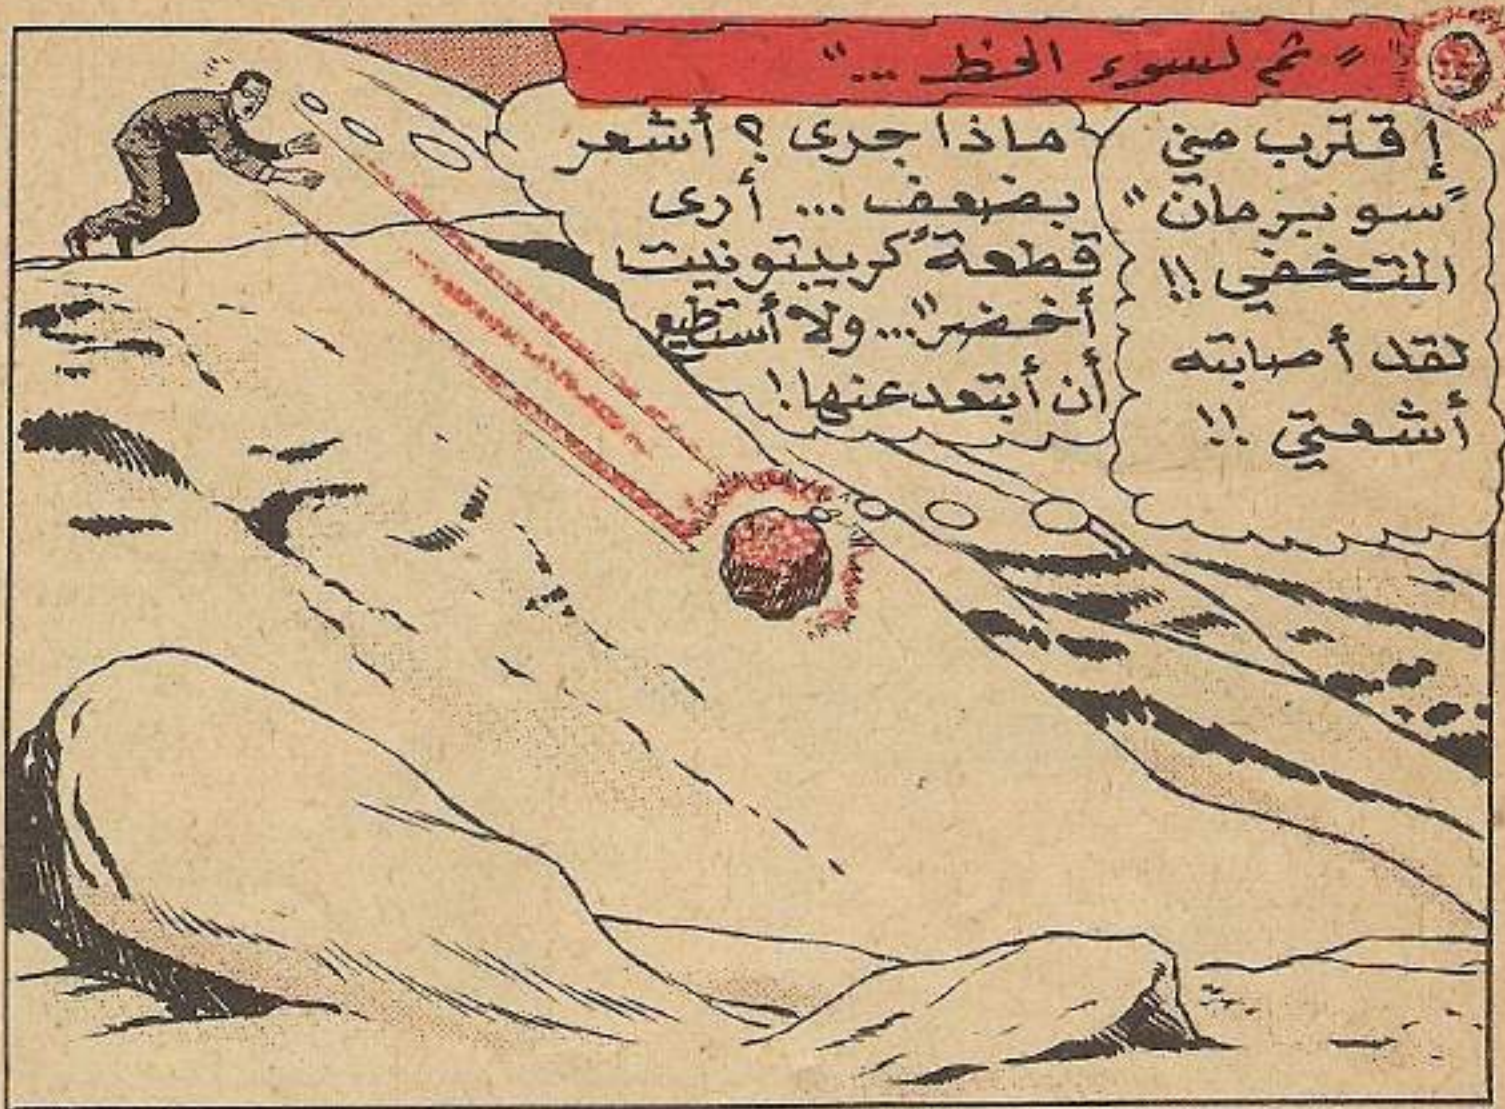 " ثم لسوء الحظ ... "
إقترب مني
"سوبرمان"
المتخفي !!
لقد أصابته
أشعتي !!
ماذا جرى ؟ أشعر
بضعف ... أرى
قطعة "كريبتونيت
أخضر" ... ولا أستطيع
أن أبتعد عنها !